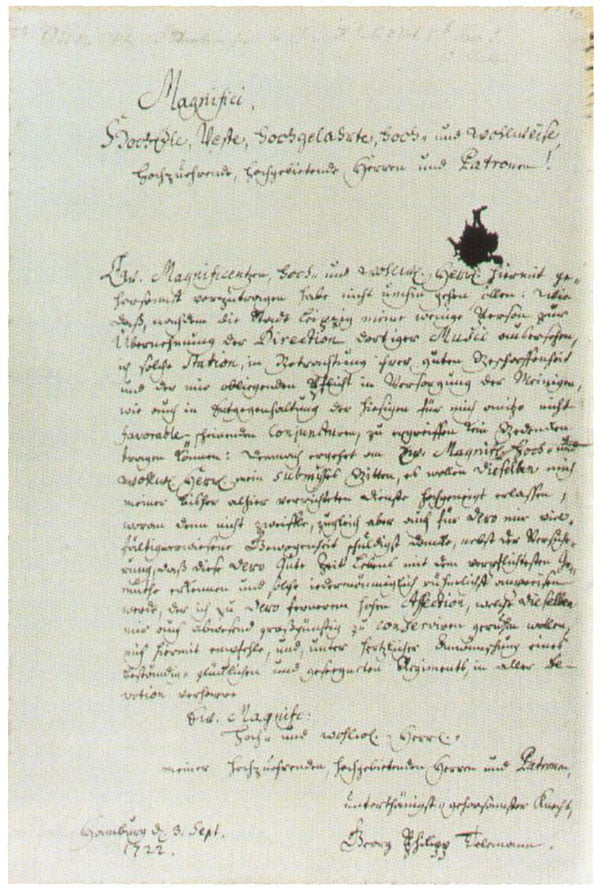 Magnifici,
HochEdle, Veste, Hochgelahrte, Hoch- und Wohlweise,
Hochzuehrende, Hochgebietende Herren und Patronen!
Ew. Magnificentzen, Hoch- und Wohlw. Herrl. hiermit ge-
horsamst vorzutragen habe nicht umhin gehen sollen: Wie
daß, nachdem die Stadt Leipzig meine wenige Person zur
Übernehmung der Direction dortiger Music ausersehen,
ich solche Station, in Betrachtung ihrer guten Beschaffenheit
und der mir obliegenden Pflicht in Versorgung der Meinigen,
wie auch in Entgegenhaltung der hiesigen für mich anitzo nicht
favorable-scheinenden Conjuncturen, zu ergreiffen kein Bedencken
tragen können: Demnach ergehet an Ew. Magnif. Hoch- und
Wohlw. Herrl. mein submisses Bitten, es wollen Dieselben mich
meiner bisher alhier verrichteten Dienste hochgeneigt erlassen,
woran denn nicht zweiffle, zugleich aber auch für Dero mir viel-
fältig erwiesene Gewogenheit schuldigst dancke, nebst der Versiche-
rung, daß diese Dero Güte Zeit Lebens mit dem verpflichtesten Ge-
müthe erkennen und solche iedermänniglich rühmlichst anpreisen
werde, der ich zu Dero fernerem hohen Affection, welche Dieselben
mir auch abwesend großgünstig zu conserviren geruhen wollen,
mich hiermit empfehle, und, unter hertzlicher Anwünschung eines
beständig-glücklichen und gesegneten Regiments, in aller De-
votion verharre
Ew. Magnific:
Hoch- und Wohlw. Herrl.
meiner Hochzuehrenden, Hochgebietenden Herren und Patronen,
unterthänigst-gehorsamster Knecht,
Hamburg d. 3. Sept.
1722.
Georg Philipp Telemann.